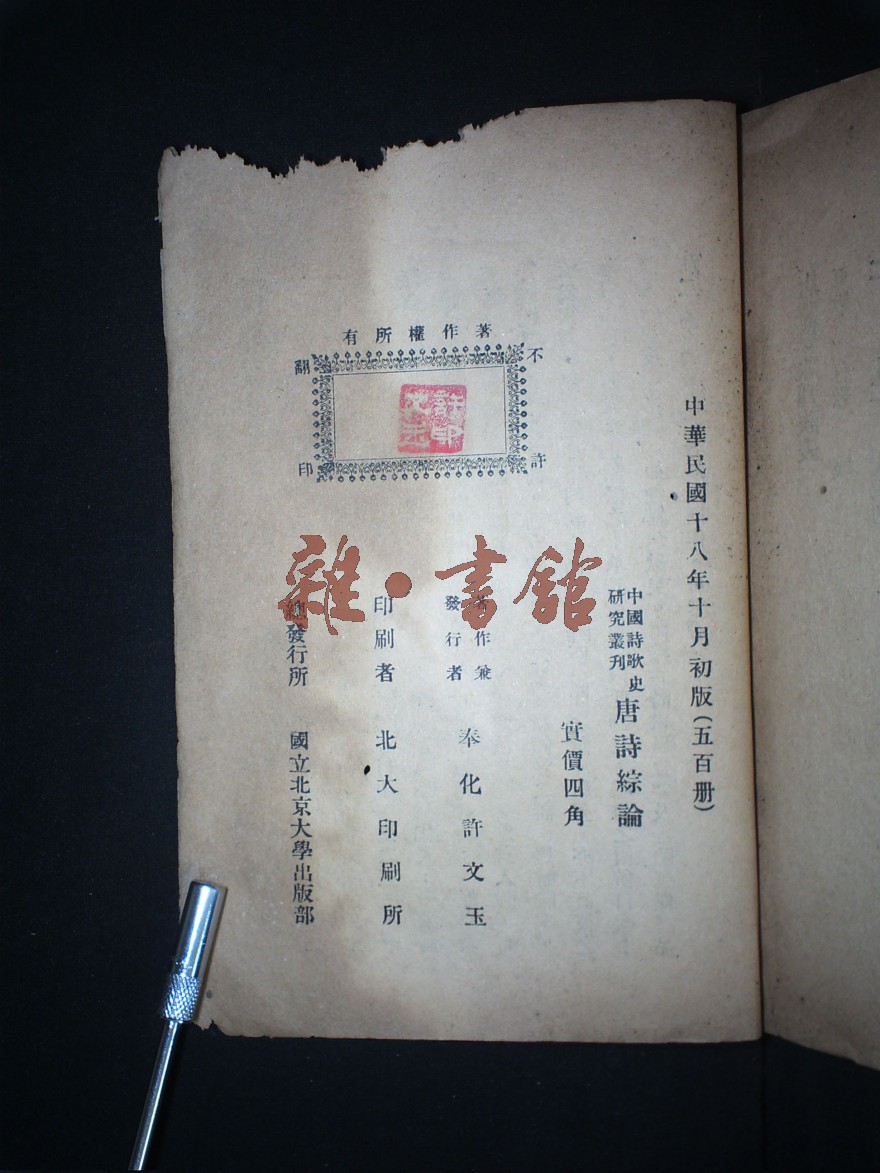 中華民國十八年十月初版(五百册)
中國詩歌史
研究叢刊
唐詩綜論
實價四角
著作兼
發行者
奉化許文玉
印刷者 北大印刷所
總發行所 國立北京大學出版部
著作權所有
不許
翻印
雜·書館